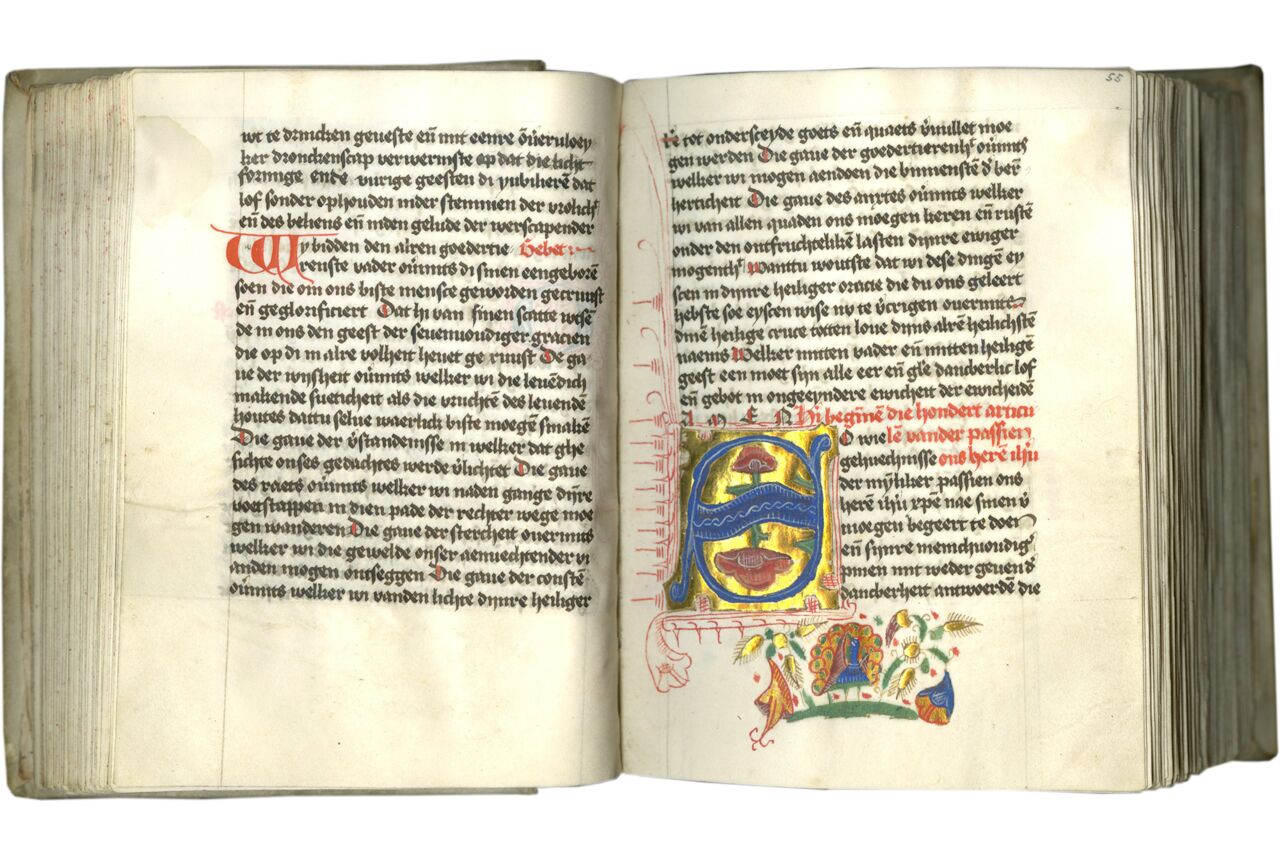 wt te drincken geueste en̄ mit eenre ou̓eruloey
ker dronckenscap verwermste op dat die licht
formige ende vurige geesten di yubiliren̄ dat
lof sonder ophouden in der stemmen der vrolich̓
en̄ des belyens en̄ in den gelude der werscapender
Wy bidden den alren goedertie gebet
renste vader ou̓mits di sinen eengeboren̄
soen die om ons biste mensce geworden gecruust
en̄ geglorificiert Dat hi van sinen scatte wisē
de in ons den geest der seuenuoudiger gracien
die op di in alre volheit heuet ge ruust De ga
ue der wijsheit ou̓mits welker wi die leuēdich
makende sueticheit als die vruchten des leuendē
houtes dattu selue waerlick biste moegē smakē
Die gaue der v̓standenisse in welker dat ghe
sichte onses gedachtes werde v̓lichtet Die gaue
des raets ou̓mits welker wi na den gange dijnre
voetstappen in dien pade der rechter wege moe
gen wanderen Die gaue der stercheit ouermits
welker wi die gewelde onser aenuechtender vi
anden mogen ontseggen Die gaue der constē
ou̓mits welker wi van den lichte dijnre heiliger
55
tot ondersceyde goets en̄ quaets v̓uullet moe
gen werden Die gaue der goedertierenh̓ ou̓mits
welker wi mogen aendoen die binnenstē d̓ ber̄
herticheit Die gaue des anxtes ou̓mits welker
wi van allen quaden ons moegen keren en̄ rustē
onder den ontfruchteliken̄ lasten dijnre ewiger
mogenth̓ Wanttu woutste dat wi dese dingē ey
scen in dijnre heiliger oracie die du ons geleert
hebste soe eyscen wise nu te v̓crigen ouermits
dinē heilige cruce totten loue dijns alrē heilichstē
naems Welker mitten vader en̄ mitten heilige
geest een moet sijn alle eer en̄ gl̄e dancberlic lof
en̄ gebot in ongeeyndere ewicheit der ewicheidē
A M E N Hij beginē die hondert articu
O wie lē vander passien
gehuechnisse ons herē ih̄u
der mȳliker passien ons
herē ih̄u xp̄e nae sinen v̓
moegen begeert te doen
en̄ sijnre menichuoudig̓
mnen mit weder geuend̓
dancberheit antwoerdē die